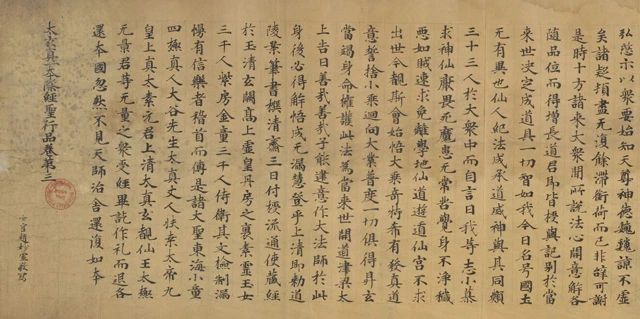 弘慈示以衆要始知天尊神德巍巍諒不虛
矣諸趣煩盡无復餘滯銜荷而已非辞可謝
是時十方諸來大衆聞所說法心開意解各
隨品位而得增長道君即皆授與記別於當
來世決定成道具一切智如我今日名号國土
无有異也仙人法成承道威神與其同類
三十三人於大衆中而自言曰我等志小
求神仙厭患无常覺身不淨穢
惡如賊速求免離學地仙道遊道仙宮不求
出世今覩斯會始悟大乘奇特希有發真道
意誓捨小乘迴向大業普度一切俱得昇玄
當竭身命擁護此法為當來世開道津梁太
上告曰善哉善哉子能建意作大法師於此
身後必得解悟成无漏慧登乎上清即勑道
陵案筆書撰清齋三日付授流通使藏經
於玉清玄闕高上虛皇丹房之裏素靈玉女
三千人紫房金童三千人侍衛其文檢制漏
慢有信樂者稽首而傳是諸大聖東海小童
四極真人大谷先生太真丈人扶桑太帝九
皇上真太素元君上清太真玄覩仙王太極
元景君等无量之衆受經畢訖作礼而退各
還本國忽然不見天師治舍還復如本
太玄真一本際經聖行品卷第三
女官趙妙虛敬寫